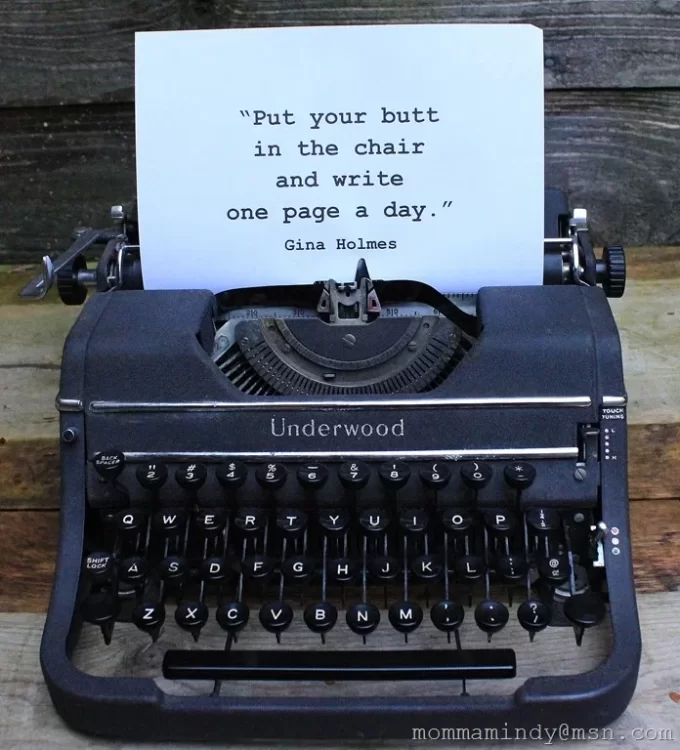 “Put your butt
in the chair
and write
one page a day.”
Gina Holmes
Underwood
TOUCH
TUNING
L
H
BACK
SPACER
" # $ % _ & ' ( ) *
2 3 4 5 6 7 8 9 0 -
Q W E R T Y U I O P
SHIFT
LOCK
A S D F G H J K L
@
Z X C V B N M , . ?
mommamindy@msn.com